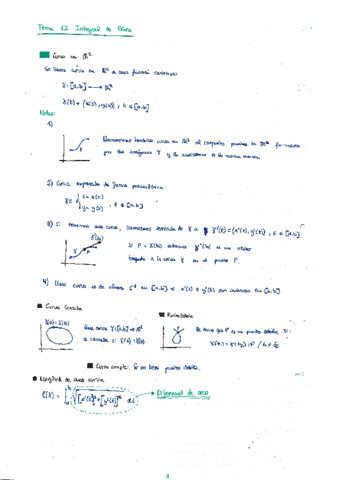 Tema 12. Integral de línea
Curva en ℝ²
Se llama curva en ℝ² a una función continua
γ: [a,b] → ℝ²
γ(t) = (x(t), y(t)), t ∈ [a,b]
Notas:
1)
Denominamos también curva en ℝ² al conjunto de puntos en ℝ² formado
por las imágenes γ y la
2) Curva expresada de forma paramétrica
γ ≡ { x = x(t)
y = y(t) , t ∈ [a,b]
3) Si tenemos una curva, llamaremos derivada de γ a γ'(t) = (x'(t), y'(t)), t ∈ [a,b]
γ'(t₀)
γ
P
Si P = γ(t₀) entonces γ'(t₀) es un vector
tangente a la curva γ en el punto P.
4) Una curva es de clase C¹ en [a,b] si x'(t) e y'(t) son continuas en [a,b].
Curva Cerrada
Punto doble
γ(a) = γ(b)
Una curva γ: [a,b] → ℝ²
es cerrada si γ(a) = γ(b)
Se dice que P es un punto doble si
γ(t₁) = γ(t₂) = P / t₁ ≠ t₂
Curva simple: Si no tiene puntos dobles.
Longitud de una curva
ℓ(γ) = ∫ₐᵇ √([x'(t)]² + [y'(t)]²) dt
Diferencial de arco
1